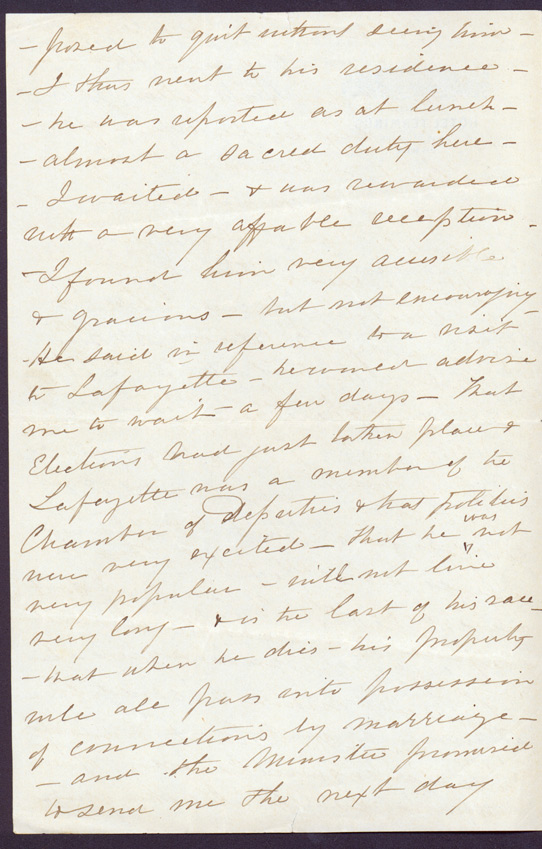 -posed to quit without seeing him -
- I thus went to his residence -
- he was reported as at lunch -
- almost a sacred duty here -
- I waited - & was rewarded
with a very affable reception -
- I found him very accesible
& gracious - but not encouraging
- He said in reference to a visit -
to Lafayette - he would advise
me to wait a few days - that
Elections had just taken place &
Lafayette was a member of the
Chamber of Deputies & that politics
were very excited - that he was not
very popular - will not live
very long - & is the last of his race -
- that when he dies - his property
will all pass into possession
of connections by marriage -
- and the Minister promised
to send me the next day